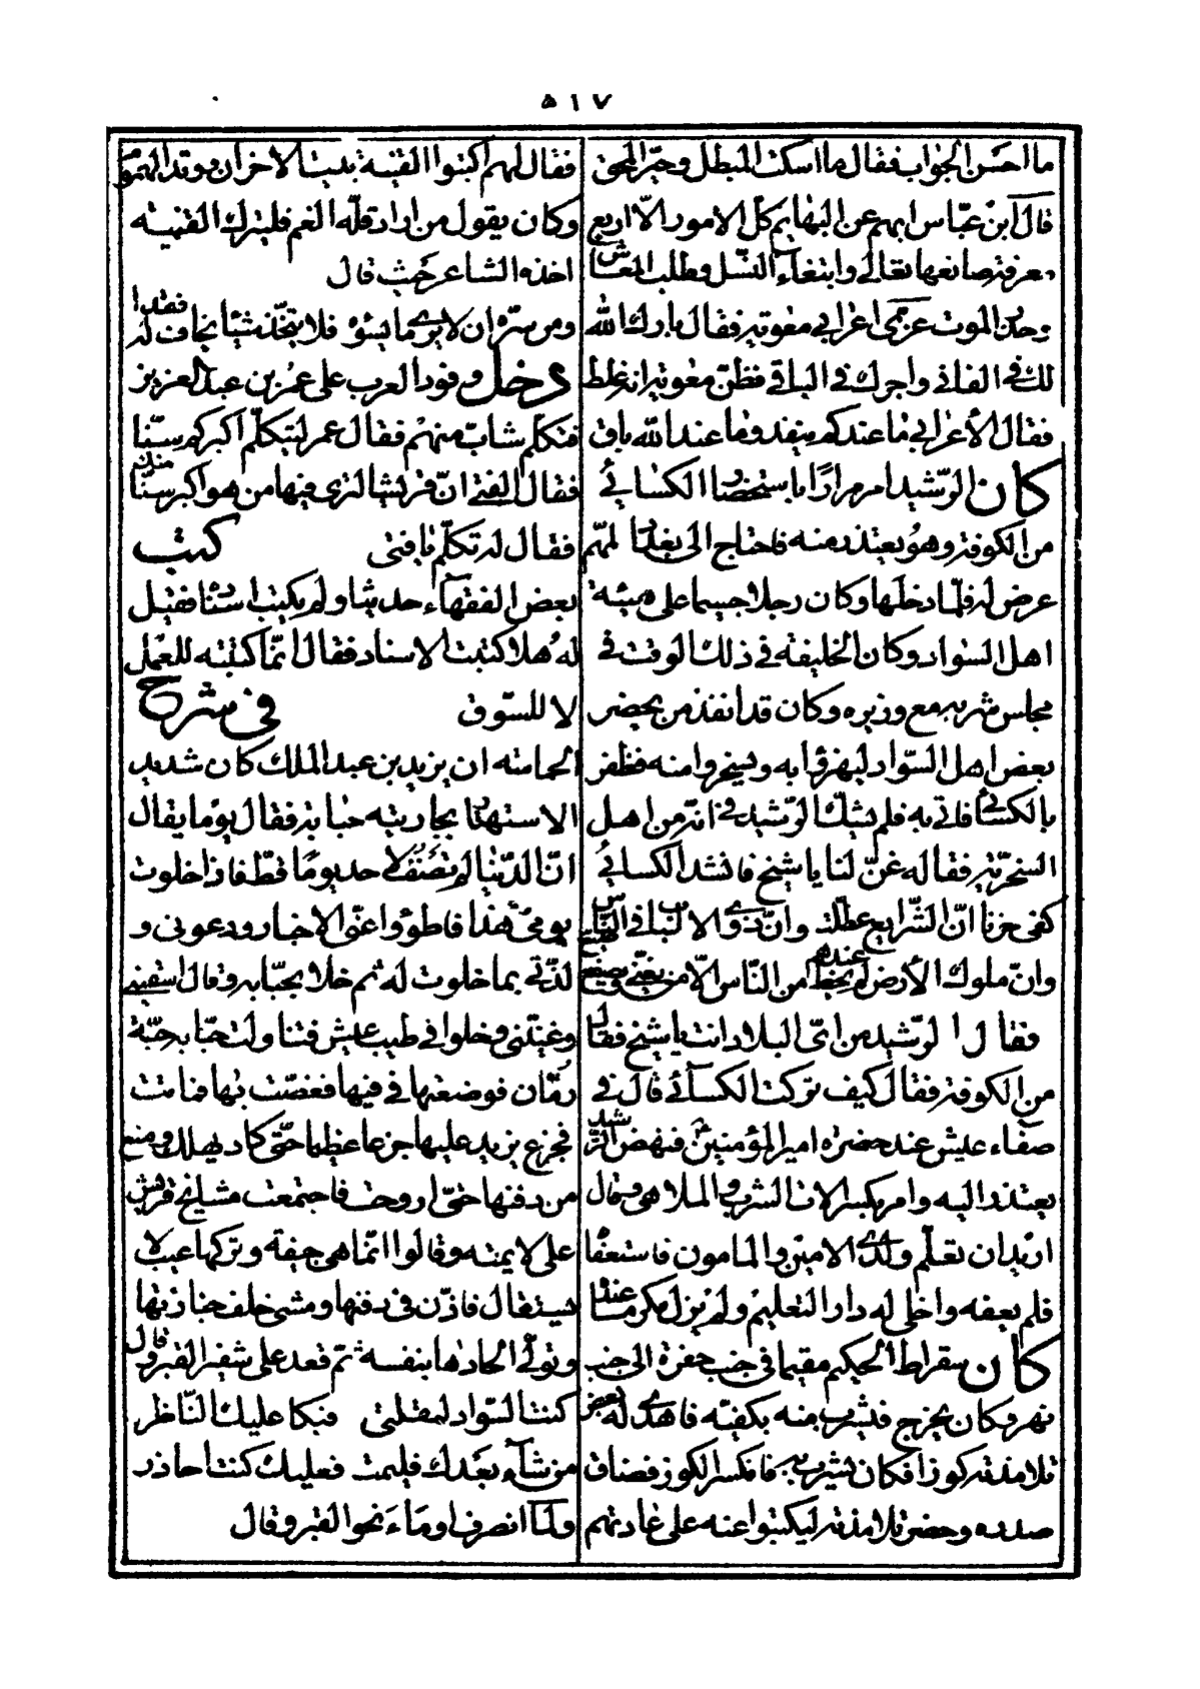 ٥١٧
ما احسن الجواب فقال ما اسكت المبطل وحير المحق
قال ابن عباس ابهم عن البهايم كل الامور الا اربع
معرفة صانعها تعالى وابتغاء النسل وطلب المعاش
وحذر الموت عزى اعرابي معوية فقال بارك الله
لك في الفاني واجرك في الباقي فظن معوية انه غلط
فقال الأعرابي ما عندكم ينفد وما عند الله باق
كان الرشيد امر مرارًا باستحضار الكسائي
من الكوفة وهو يعتذر منه فاحتاج الى بغداد لمهم
عرض له فلما دخلها وكان رجلا جسيما على هيئة
اهل السواد وكان الخليفة في ذلك الوقت في
مجلس شربه مع وزيره وكان قد انفذ من يحضر
بعض اهل السواد ليهزؤا به ويسخروا منه فظفر
بالكسائي فاتى به فلم يشك الرشيد في انه من اهل
السخرية فقال له غن لنا يا شيخ فانشد الكسائي
كفى حزنا ان الشرايع عطلت وان ذوى الالباب في الناس ضيع
وان ملوك الأرض لم يحظ عندهم من الناس الا من يغنى ويصفع
فقال الرشيد من اى البلاد انت يا شيخ فقال
من الكوفة فقال كيف تركت الكسائي قال في
صفاء عيش عند حضرة امير المؤمنين فنهض الرشيد
يعتذر اليه وامر بكسر الات الشرب والملاهى وقال
اريد ان تعلم ولدى الامين والمامون فاستعفا
فلم يعفه واخلى له دار التعليم ولم يزل مكرما عنده
كان سقراط الحكيم مقيما في جنب حفرة الى جنب
نهر وكان يخرج فيشرب منه بكفيه فاهدى له بعض
تلامذته كوزا فكان يشرب به فانكسر الكوز فضاق
صدره وحضر تلامذته ليكتبوا عنه على عادتهم
فقال لهم اكتبوا القنية بيت الاحزان وقد الهموم
وكان يقول من اراد قلة الغم فليترك القنية
اخذه الشاعر حيث قال
ومن سره ان لا يرى ما يسؤه فلا يتخذ شيئا يخاف له فقدا
دخل وفود العرب على عمر بن عبد العزيز
فتكلم شاب منهم فقال عمر ليتكلم اكبركم سنا
فقال الفتى ان قريشا لترى فيها من هو اكبر سنا منك
فقال له تكلم يا فتى كتب
بعض الفقهاء حديثا ولم يكتب اسنادا فقيل
له هلا كتبت الاسناد فقال انما كتبته للعمل
لا للسوق في شرح
الحماسة ان يزيد بن عبد الملك كان شديد
الاستهتار بجاريته حبابة فقال يوما يقال
ان الدنيا لم تصف لاحد يوما قط فاذا خلوت
يومى هذا فاطووا عنى الاخبار ودعونى و
لذتى بما خلوت له ثم خلا بحبابة وقال اسقينى
وغنينى وخلوا في طيب عيش فتناولت حبابة حبة
رمان فوضعتها في فيها فغصت بها فماتت
فجزع يزيد عليها جزعا عظيما حتى كاد يهلك ومنع
من دفنها حتى اروحت فاجتمعت مشايخ قريش
على لايمته وقالوا انما هى جيفة وتركها عيب لا
يستقال فاذن في دفنها ومشى خلف جنازتها
وتولى الحادها بنفسه ثم قعد على شفير القبر وقال
كنت السواد لمقلتى فبكا عليك الناظر
من شاء بعدك فليمت فعليك كنت احاذر
ولما انصرف اوماء نحو القبر وقال